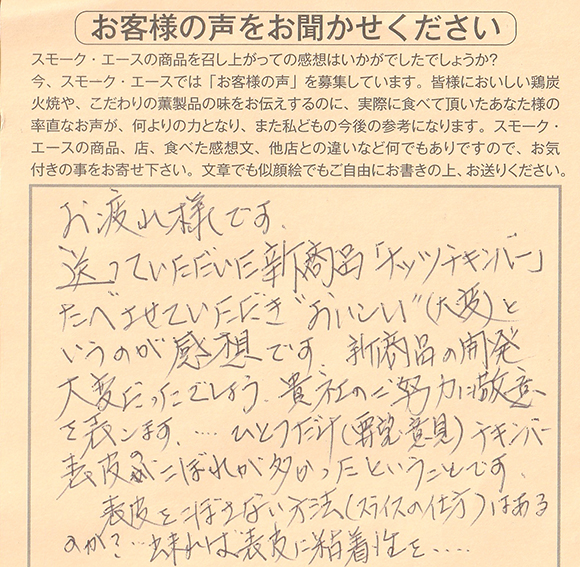 お客様の声をお聞かせください
スモーク・エースの商品を召し上がっての感想はいかがでしたでしょうか?
今、スモーク・エースでは「お客様の声」を募集しています。皆様においしい鶏炭
火焼や、こだわりの薫製品の味をお伝えするのに、実際に食べて頂いたあなた様の
率直なお声が、何よりの力となり、また私どもの今後の参考になります。スモーク・
エースの商品、店、食べた感想文、他店との違いなど何でもありですので、お気
付きの事をお寄せ下さい。文章でも似顔絵でもご自由にお書きの上、お送りください。
お疲れ様です。
送っていただいた新商品「ナッツチキンバー」
たべさせていただき"おいしい"(大変)と
いうのが感想です。新商品の開発
大変だったでしょう。貴社のご努力に敬意
を表します。…ひとつだけ(要望・意見)チキンバー
表皮のこぼれが多かったということです。
表皮をこぼさない方法(スライスの仕方)はある
のか?…出来れば表皮に粘着性を……